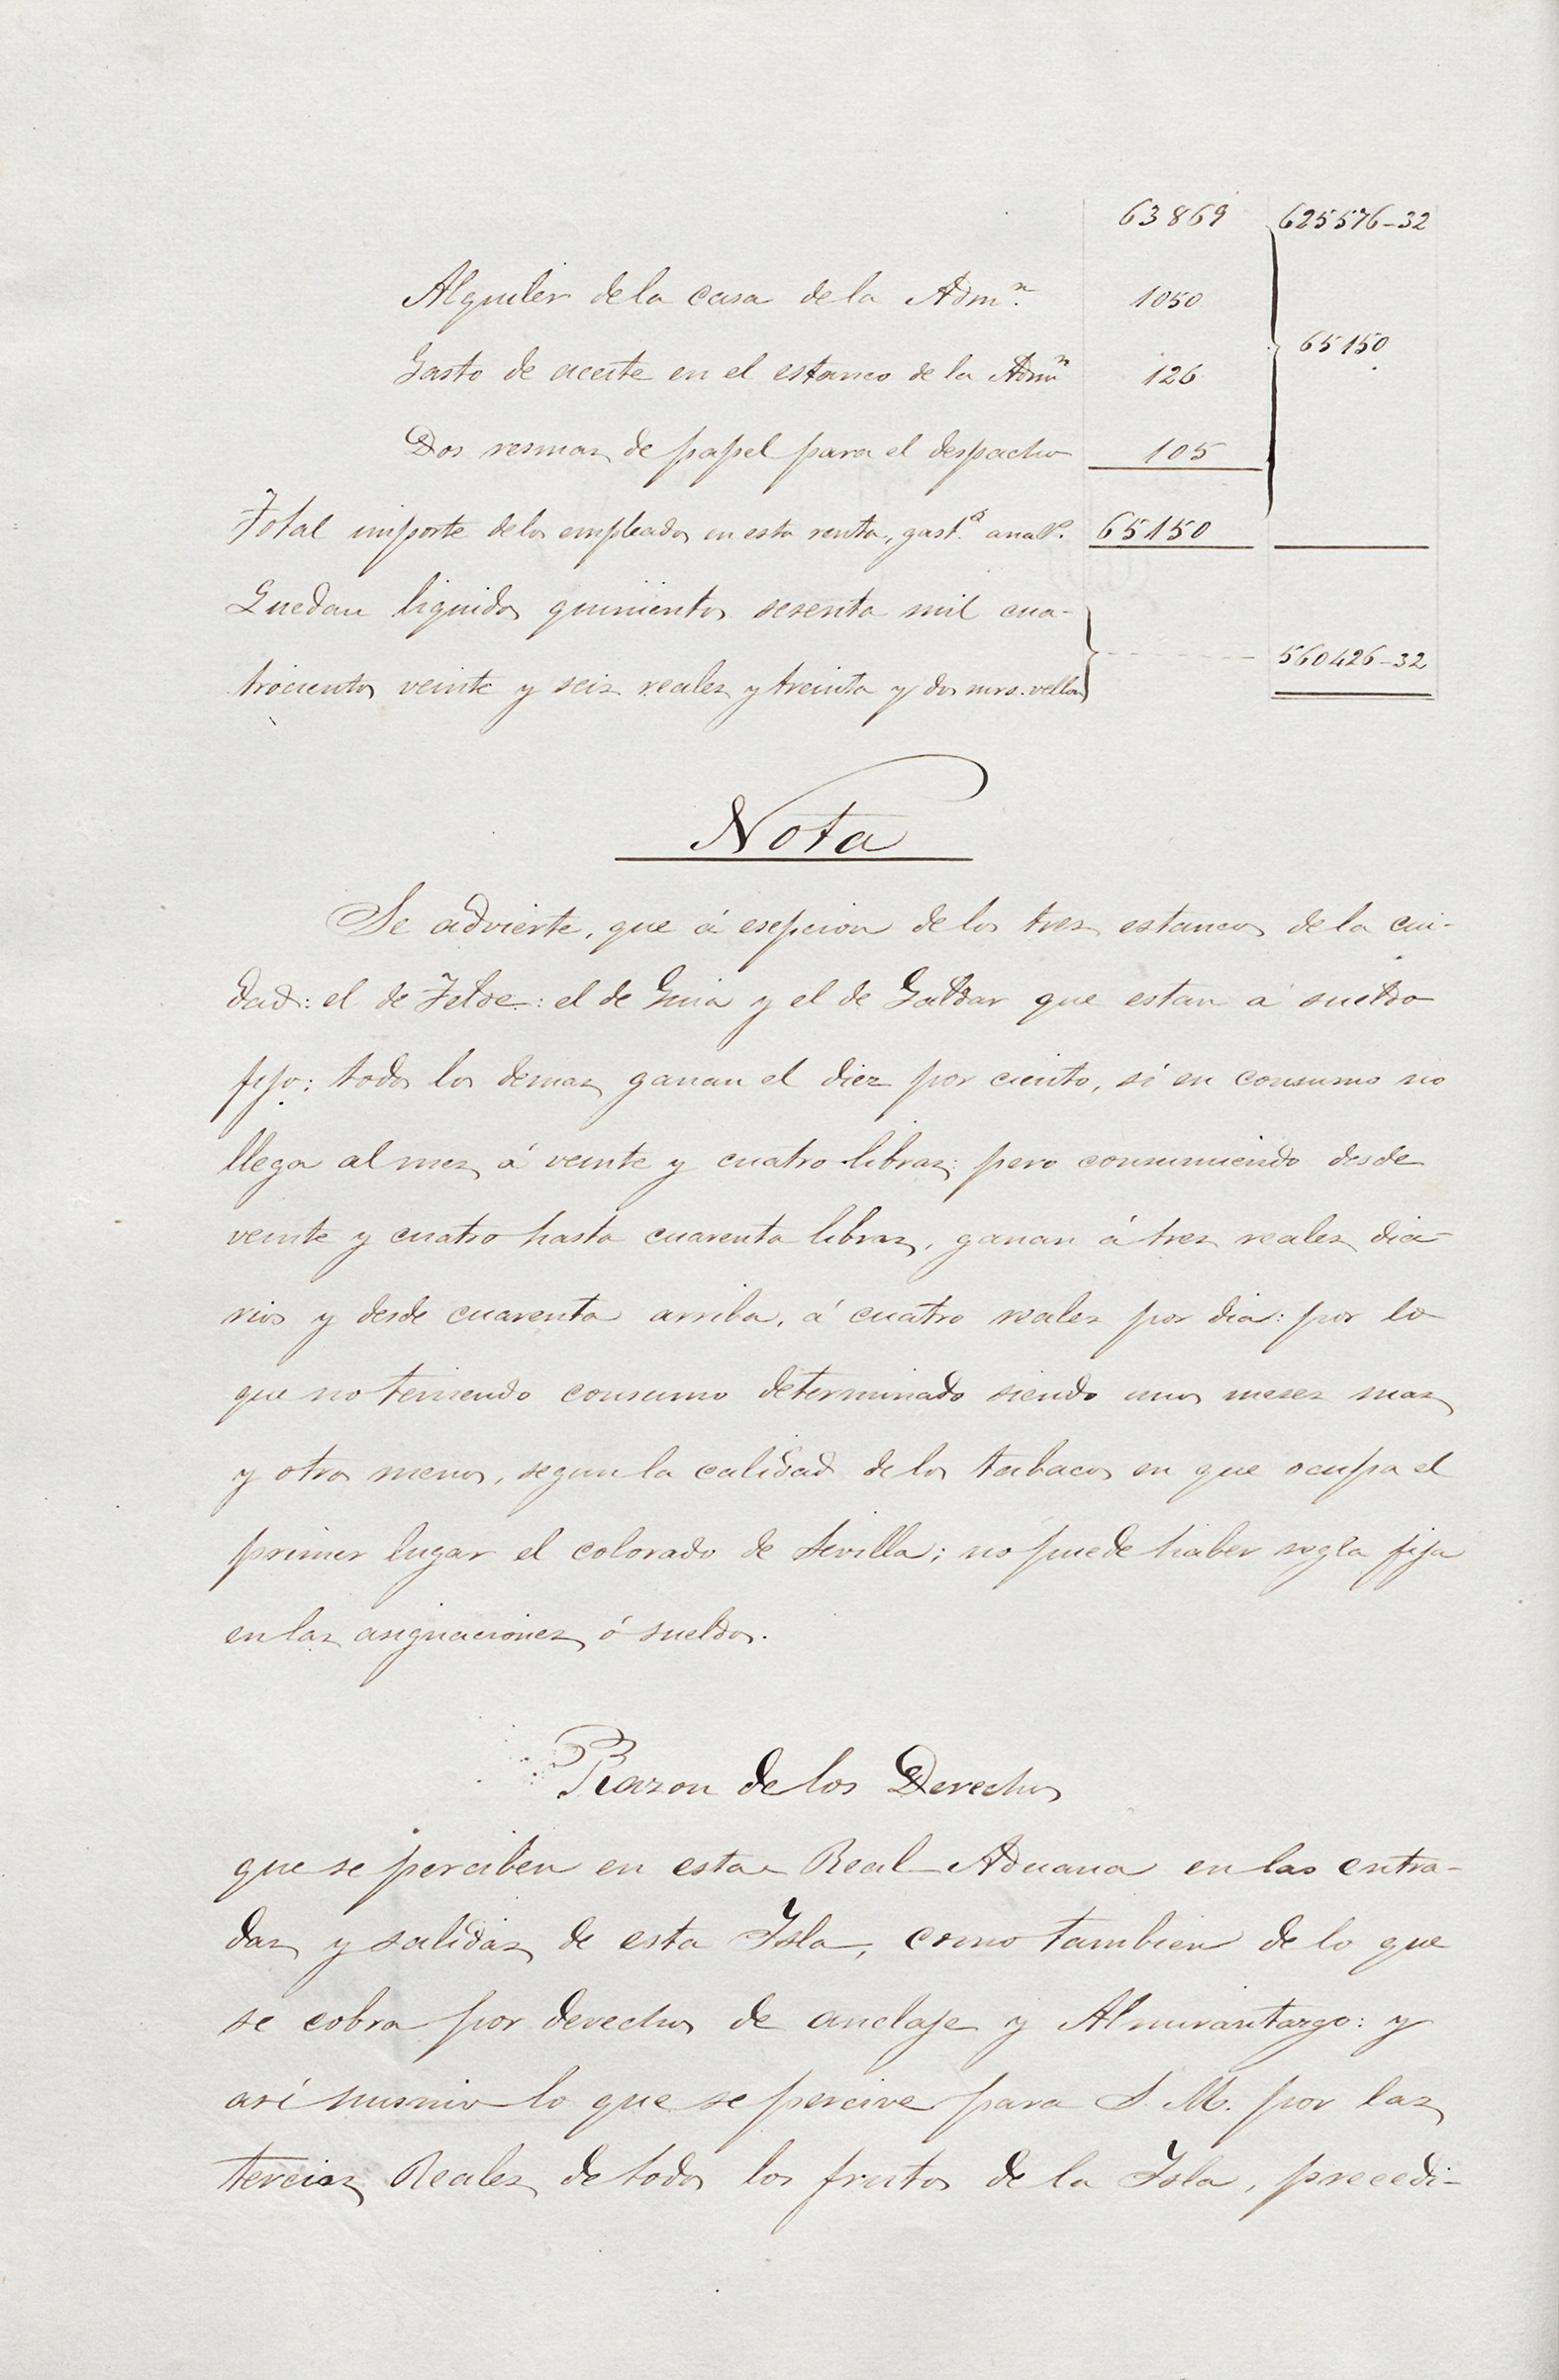 63869 625576-32
Alquiler de la casa de la Admn. 1050
65150
Gasto de aceite en el estanco de la Admn 126
Dos resmas de papel para el despacho 105
Total importe de los empleados en esta renta, gast.s anal.s 65150
Quedan liquidos quinientos sesenta mil cua-
trocientos veinte y seis reales y treinta y dos mrs. vellon 560426-32
Nota
Se advierte, que á esepcion de los tres estancos de la ciu-
dad: el de Telde: el de Guia y el de Galdar que estan á sueldo
fijo: todos los demas ganan el diez por ciento, si en consumo no
llega al mes á veinte y cuatro libras; pero consumiendo desde
veinte y cuatro hasta cuarenta libras, ganan á tres reales dia-
rios y desde cuarenta arriba, á cuatro reales por dia: por lo
que no teniendo consumo determinado siendo unos meses mas
y otros menos, segun la calidad de los tabacos en que ocupa el
primer lugar el colorado de Sevilla; no puede haber regla fija
en las asignaciones ó sueldos.
Razon de los Derechos
que se perciben en esta Real Aduana en las entra-
das y salidas de esta Isla, como tambien de lo que
se cobra por derechos de anclaje y Almirantazgo: y
así mismo lo que se percive para S. M. por las
tercias Reales de todos los frutos de la Isla, precedi-